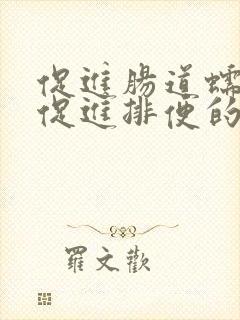 促進腸道蠕
促進排便的
羅文歡